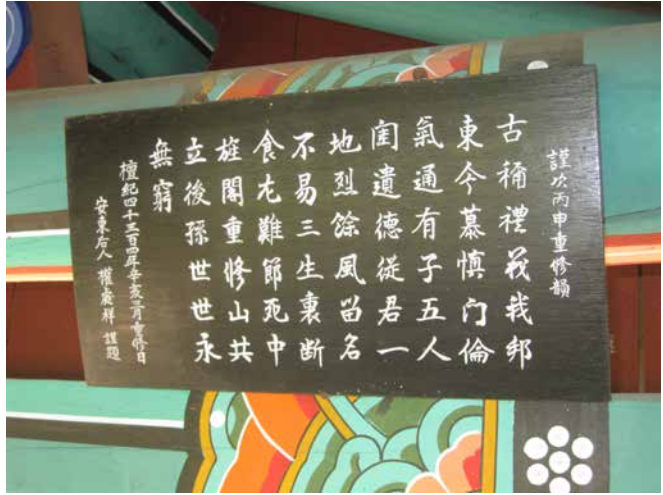 謹次丙申重修韻
古稱禮義我邦
東今慕慎门倫
氣通有子五人
閨遺德従君一
地烈餘風留名
不易三生裏断
食尤難節死中
旌閣重修山共
立後孫世世永
無窮
檀紀四千三百四年辛亥三月重修日
安東后人 權祥 謹題